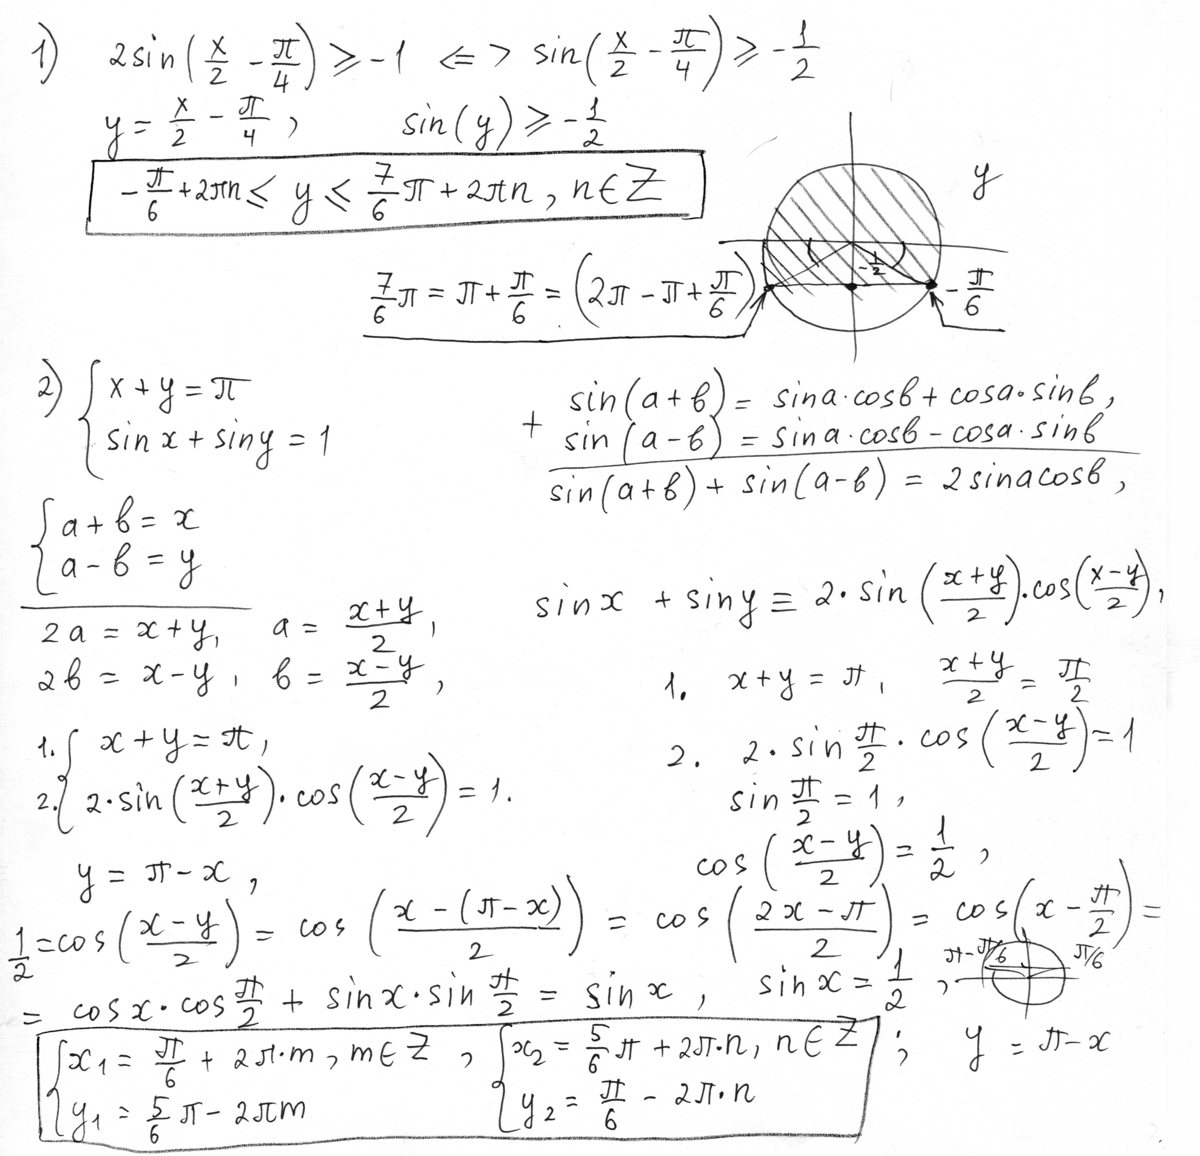 1) 2sin(x/2 - π/4) ⩾ -1 <=> sin(x/2 - π/4) ⩾ -1/2
y = x/2 - π/4, sin(y) ⩾ -1/2
-π/6 + 2πn ⩽ y ⩽ 7/6 π + 2πn, n∈Z
y
-1/2
-π/6
7/6 π = π + π/6 = (2π - π + π/6)
2) { x + y = π
sin x + sin y = 1
+ sin(a+b) = sina·cosb + cosa·sinb,
sin(a-b) = sina·cosb - cosa·sinb
sin(a+b) + sin(a-b) = 2sinacosb,
{ a + b = x
a - b = y
2a = x+y, a = (x+y)/2,
2b = x-y, b = (x-y)/2,
sinx + siny ≡ 2·sin((x+y)/2)·cos((x-y)/2),
1. { x + y = π,
2. 2·sin((x+y)/2)·cos((x-y)/2) = 1.
1. x+y = π, (x+y)/2 = π/2
2. 2·sin π/2·cos((x-y)/2) = 1
sin π/2 = 1,
cos((x-y)/2) = 1/2,
y = π-x,
1/2 = cos((x-y)/2) = cos((x-(π-x))/2) = cos((2x-π)/2) = cos(x - π/2) =
= cosx·cos π/2 + sinx·sin π/2 = sinx, sinx = 1/2,
π-π/6 π/6
{ x₁ = π/6 + 2π·m, m∈Z, { x₂ = 5/6 π + 2π·n, n∈Z ; y = π-x
y₁ = 5/6 π - 2πm y₂ = π/6 - 2π·n